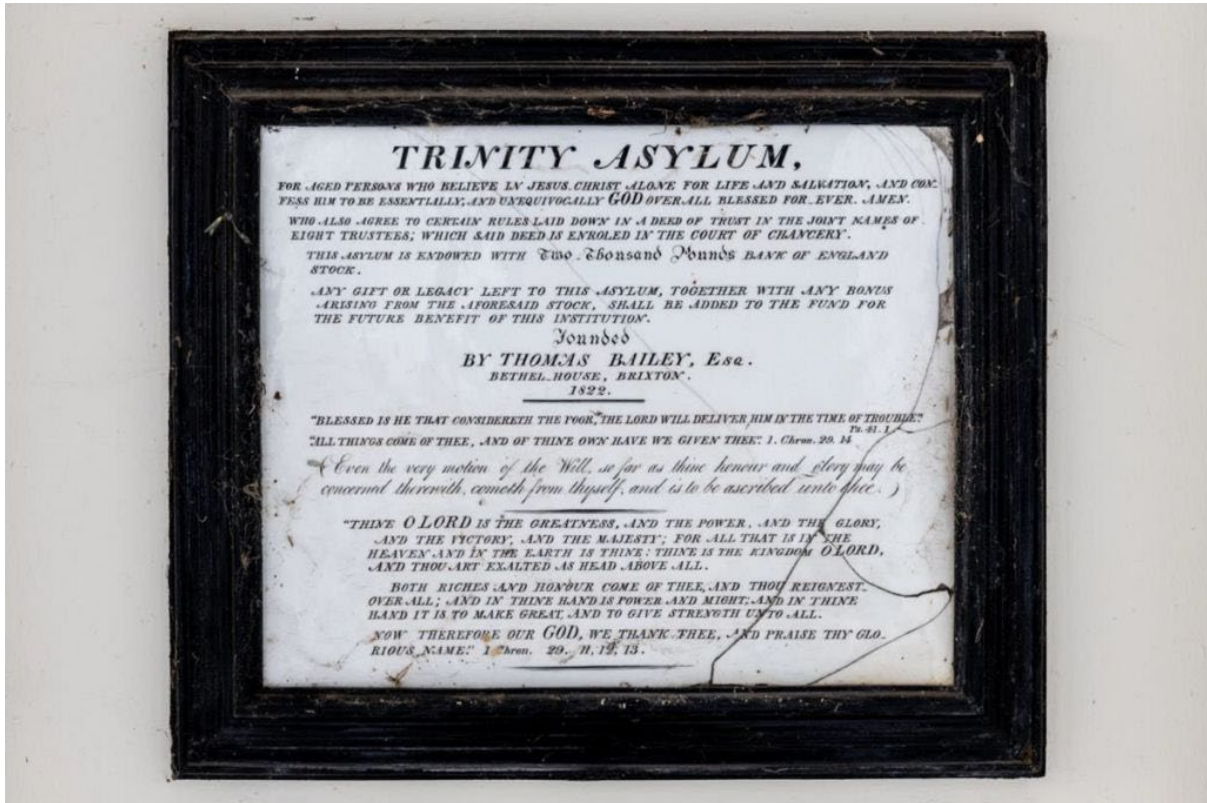 TRINITY ASYLUM,
FOR AGED PERSONS WHO BELIEVE IN JESUS CHRIST ALONE FOR LIFE AND SALVATION, AND CON-
FESS HIM TO BE ESSENTIALLY, AND UNEQUIVOCALLY GOD OVER ALL BLESSED FOR EVER. AMEN.
WHO ALSO AGREE TO CERTAIN RULES LAID DOWN IN A DEED OF TRUST IN THE JOINT NAMES OF
EIGHT TRUSTEES; WHICH SAID DEED IS ENROLED IN THE COURT OF CHANCERY.
THIS ASYLUM IS ENDOWED WITH Two Thousand Pounds BANK OF ENGLAND
STOCK.
ANY GIFT OR LEGACY LEFT TO THIS ASYLUM, TOGETHER WITH ANY BONUS
ARISING FROM THE AFORESAID STOCK, SHALL BE ADDED TO THE FUND FOR
THE FUTURE BENEFIT OF THIS INSTITUTION.
Founded
BY THOMAS BAILEY, Esq.
BETHEL HOUSE, BRIXTON.
1822.
"BLESSED IS HE THAT CONSIDERETH THE POOR, THE LORD WILL DELIVER HIM IN THE TIME OF TROUBLE."
Ps. 41. 1.
"ALL THINGS COME OF THEE, AND OF THINE OWN HAVE WE GIVEN THEE." 1. Chron. 29. 14
(Even the very motion of the Will, so far as thine honour and glory may be
concerned therewith, cometh from thyself, and is to be ascribed unto thee.)
"THINE O LORD IS THE GREATNESS, AND THE POWER, AND THE GLORY,
AND THE VICTORY, AND THE MAJESTY; FOR ALL THAT IS IN THE
HEAVEN AND IN THE EARTH IS THINE: THINE IS THE KINGDOM O LORD,
AND THOU ART EXALTED AS HEAD ABOVE ALL.
BOTH RICHES AND HONOUR COME OF THEE, AND THOU REIGNEST
OVER ALL; AND IN THINE HAND IS POWER AND MIGHT; AND IN THINE
HAND IT IS TO MAKE GREAT, AND TO GIVE STRENGTH UNTO ALL.
NOW THEREFORE OUR GOD, WE THANK THEE, AND PRAISE THY GLO-
RIOUS NAME." 1 Chron. 29. 11, 12, 13.